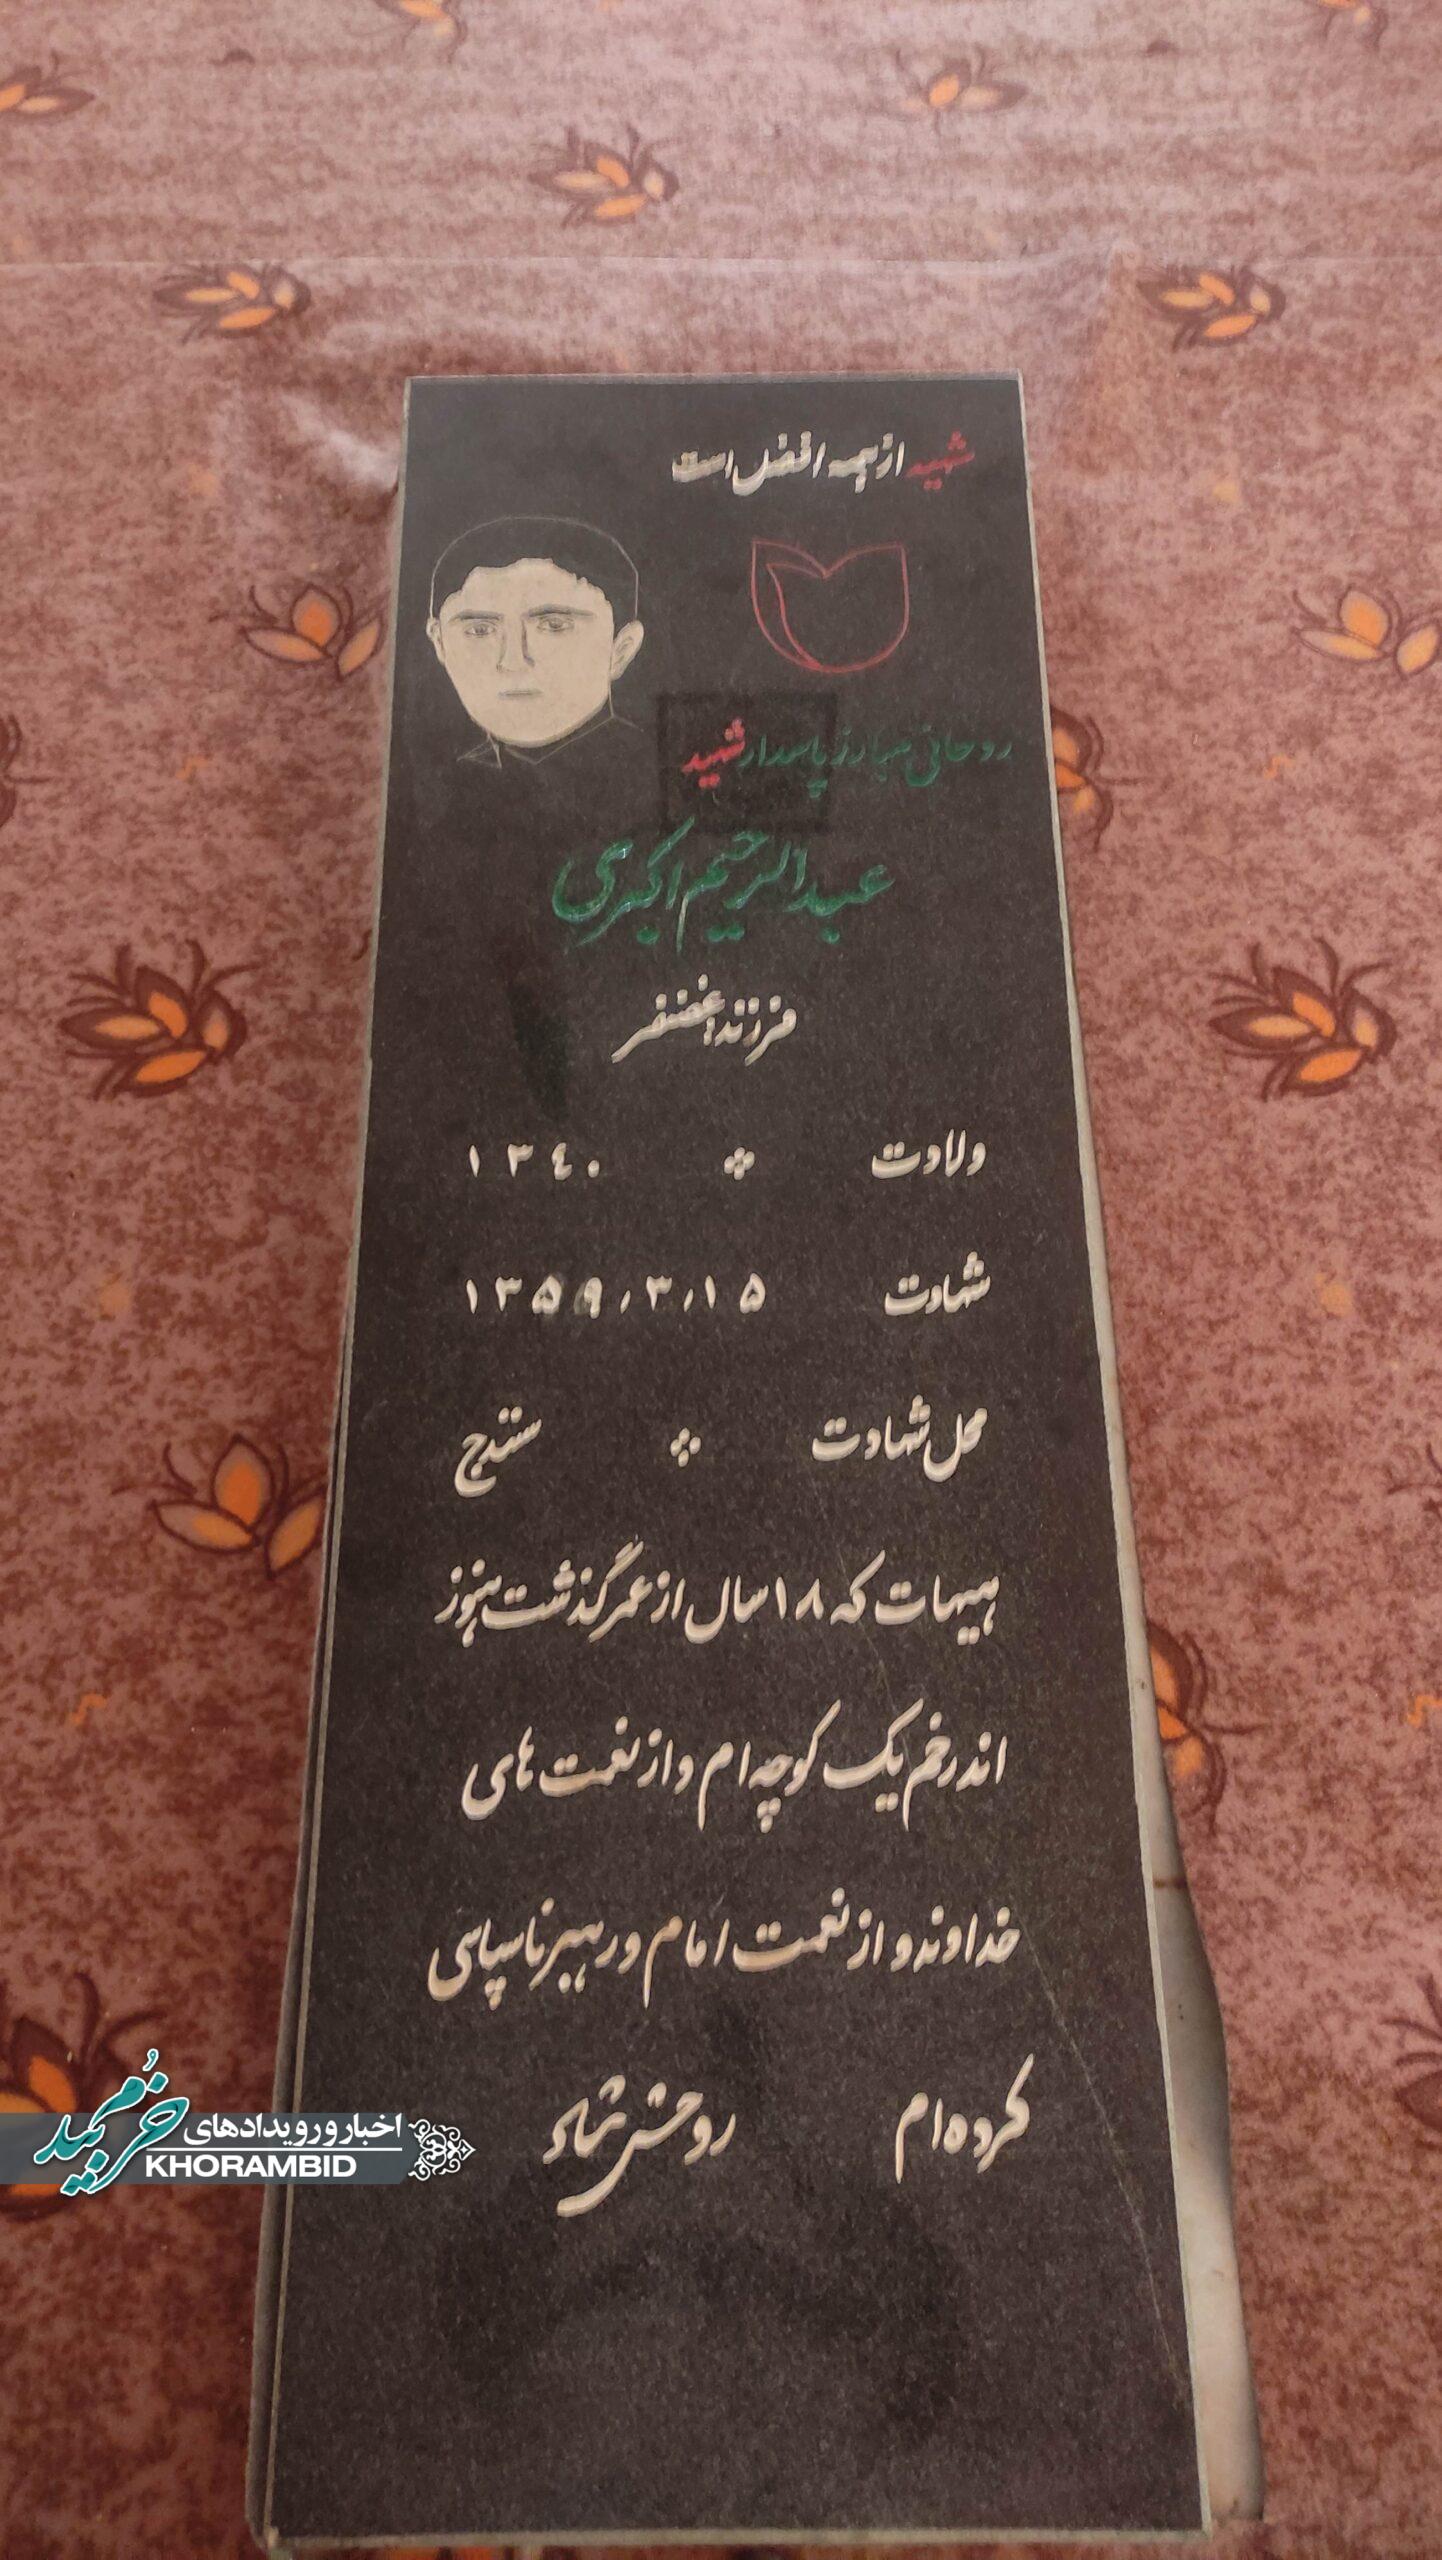 شهید از همه افضل است
روحانی مبارز پاسدار شهید
عبدالرحیم اکبری
فرزند: غضنفر
ولادت ۱۳۴۰
شهادت ۱۳۵۹،۳،۱۵
محل شهادت سنندج
هیهات که ۱۸ سال از عمر گذشت هنوز
اندر خم یک کوچه ام و از نعمت های
خداوند و از نعمت امام و رهبر ناسپاسی
کرده ام روحش شاد
اخبار و رویدادهای
خرمبید
KHORAMBID